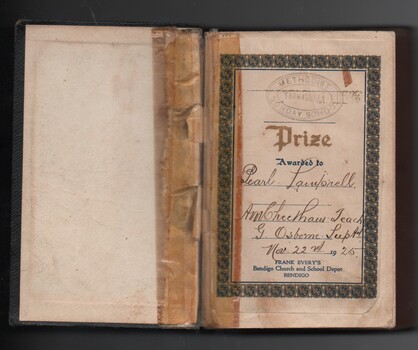 METHODIST
SUNDAY SCHOOL
Prize
Awarded to
Pearl Lamprell
A M Cheetham Teach
G. Osborne Supt
Nov 22nd 1925
FRANK EVERY'S
Bendigo Church and School Depot
BENDIGO